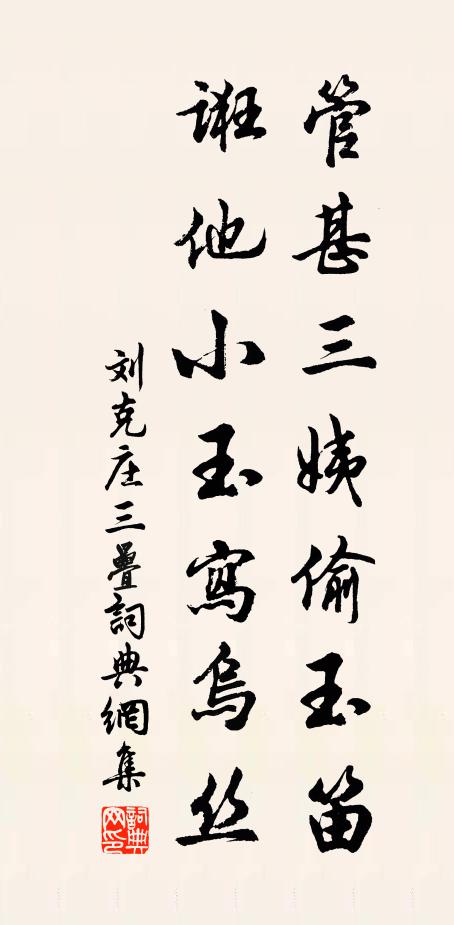 管甚三姨偷玉笛
诳他小玉寫烏丝
刘克庄三疊詞典網集
詞典網印